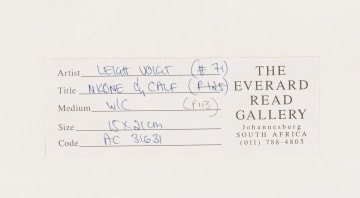 Artist LEIGH VOIGT (# 71)
Title NKONE & CALF (P125)
Medium W/C (P113)
Size 15 x 21cm
Code AC 31631
THE
EVERARD
READ
GALLERY
Johannesburg
SOUTH AFRICA
(011) 788-4805